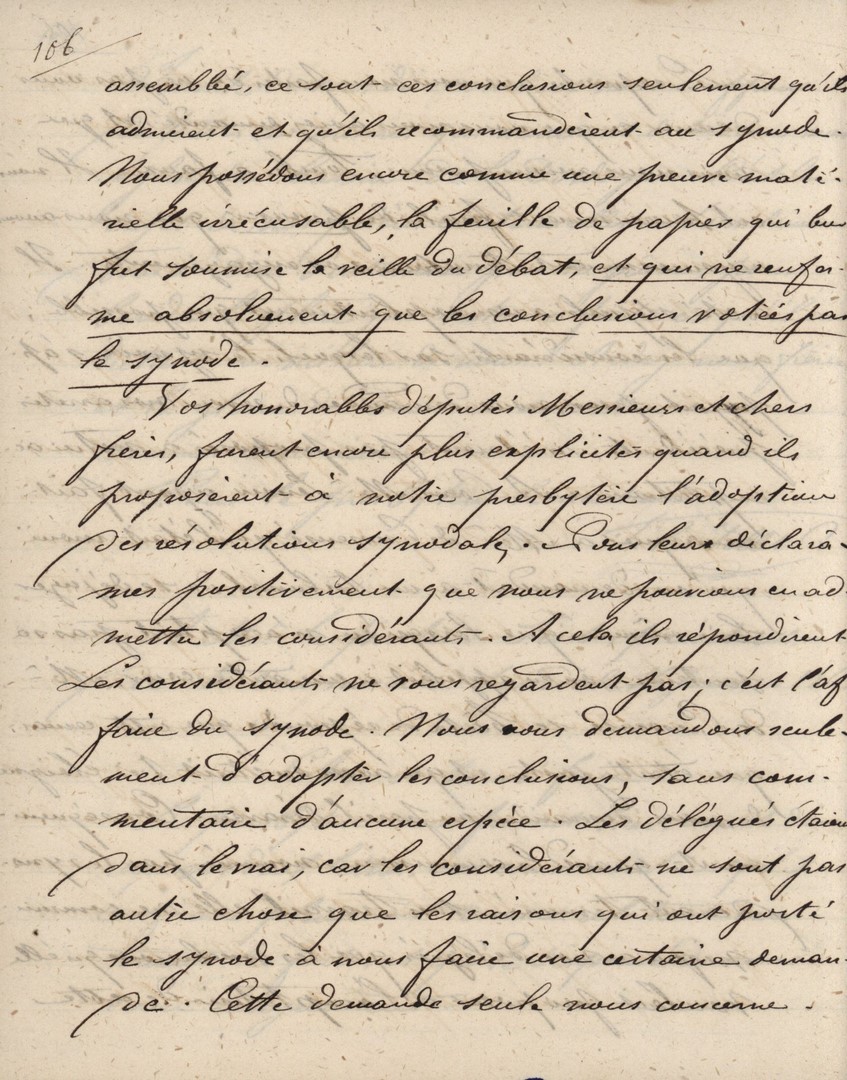 106
assemblé, ce sont ces conclusions seulement qu'ils
admirent et qu'ils recommandèrent au synode.
Nous possédons encore comme une preuve maté-
rielle irrécusable, la feuille de papier qui leur
fut soumise la veille du débat, et qui ne renfer-
me absolument que les conclusions votées par
le synode.
Vos honorables députés Messieurs et chers
frères, furent encore plus explicites quand ils
proposèrent à notre presbytère l'adoption
des résolutions synodales. Nous leur déclarâ-
mes positivement que nous ne pouvions en ad-
mettre les considérants. A cela ils répondirent
Les considérants ne vous regardent pas; c'est l'af
faire du synode. Nous vous demandons seule-
ment d'adopter les conclusions, sans com-
mentaire d'aucune espèce. Les délégués étaient
dans le vrai, car les considérants ne sont pas
autre chose que les raisons qui ont porté
le synode à nous faire une certaine deman-
de. Cette demande seule nous concerne.